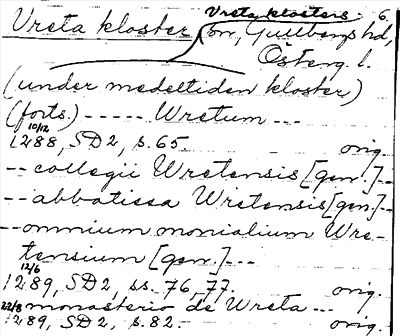 Vreta klosters 6.
Vreta kloster sn, Gullbergs hd,
Österg. l.
(under medeltiden kloster)
(forts.) ----- Wretum ---
10/12
1288, SD2, s. 65. orig.
-- collegii Wretensis [gen.] --
-- abbatissa Wretensis [gen.] --
-- omnium monialium Wre-
tensium [gen.] ---
12/6
1289, SD2, ss. 76, 77. orig.
22/8 monasterio de Wreta ---
1289, SD2, s. 82. orig.